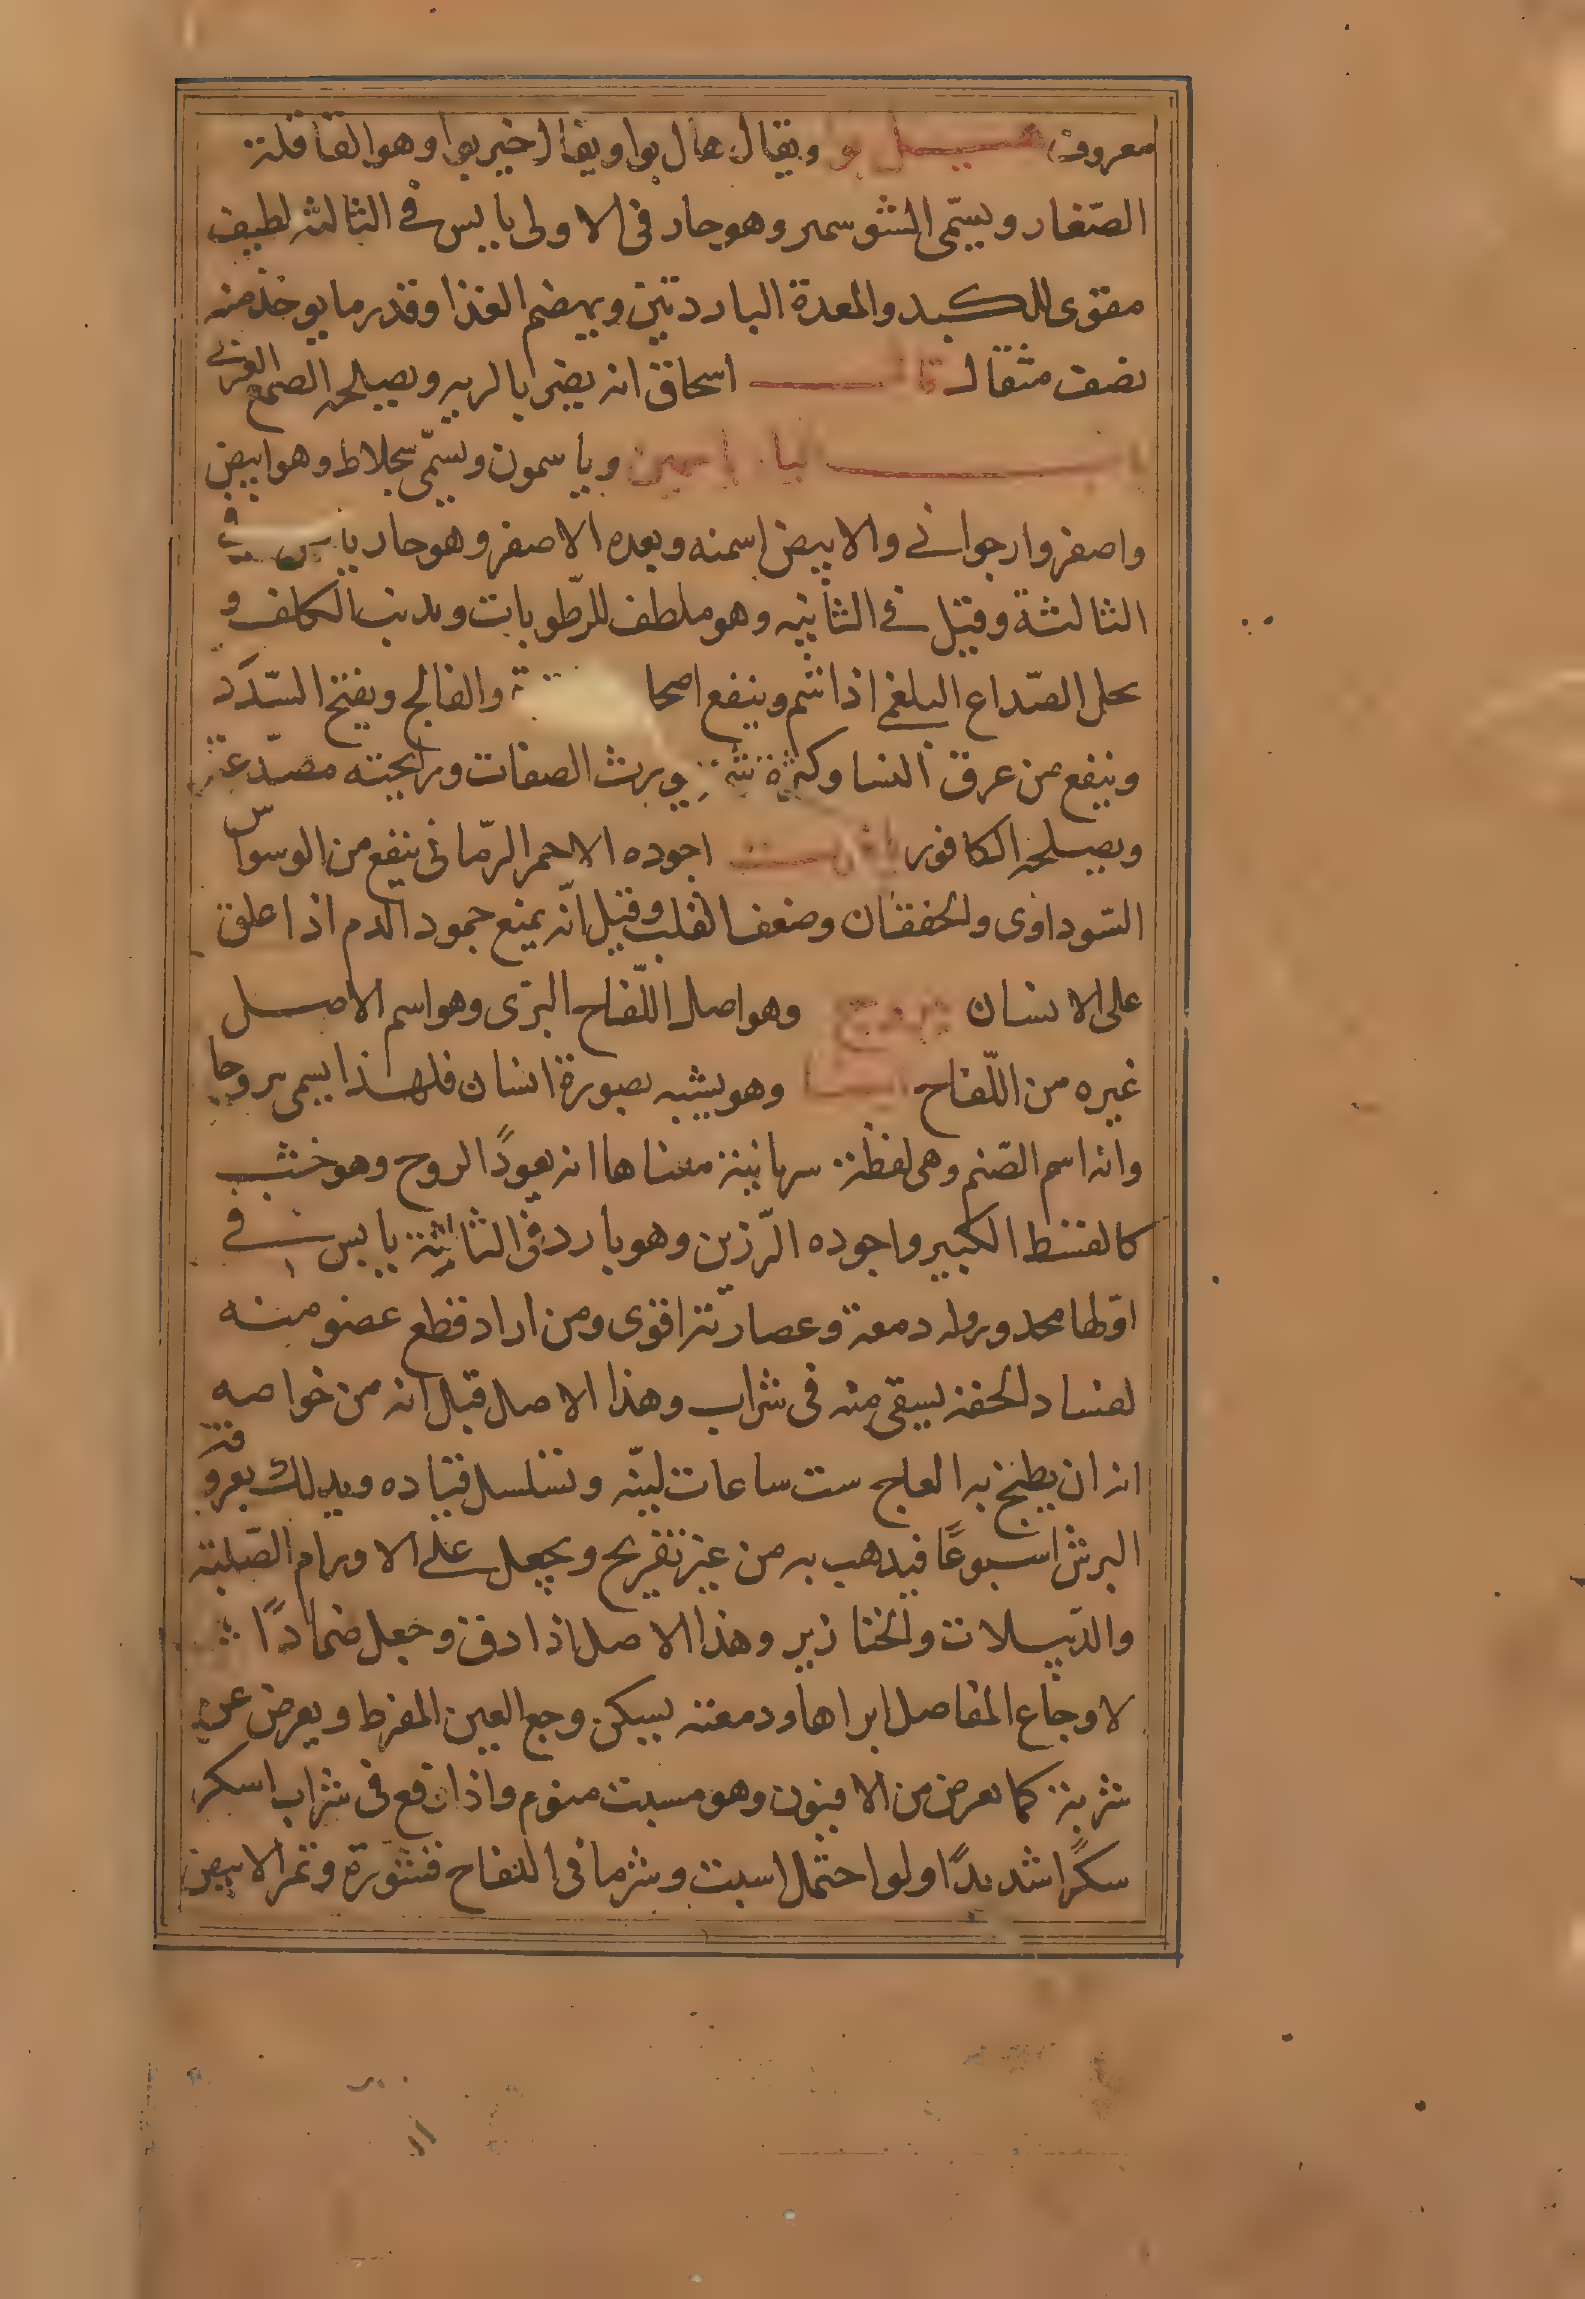 معروف هيل بوا ويقال هال بوا ويقال خير بوا وهو القاقلة
الصّغار ويسمّى الشوسمير وهو حار في الاولى يابس في الثالثه لطيف
مقوى للكبد والمعدة الباردتين ويهضم الغذا وقدر ما يوخذ منه
نصف مثقال قال اسحاق انه يضر بالريه ويصلحه الصمغ العربي
باب اليا ياسمين وياسمون ويسمّى سجلاط وهو ابيض
واصفر وارجواني والابيض اسمنه وبعده الاصفر وهو حار يابس في
الثالثة وقيل في الثانيه وهو ملطف للرّطوبات ويذهب الكلف و
يحلل الصّداع البلغمي اذا شم وينفع اصحا والفالج ويفتح السّدد
وينفع من عرق النسا وكثرة شمه يورث الصفات ورايحته مصدّعة
ويصلحه الكافور ياقوت اجوده الاحمر الرّماني ينفع من الوسواس
السّوداوى والخفقان وضعف القلب وقيل انّه يمنع جمود الدم اذا علق
على الانسان يبروح وهو اصل اللّفاح البرّى وهو اسم الاصل
غيره من اللّفاح وهو يشبه بصورة انسان فلهذا يسمى يبروحا
وانه اسم الصّنم وهى لفظة سريانية معناها انه يعوذ الروح وهو خشب
كالقسط الكبير واجوده الرّزين وهو بارد في الثانية يابس في
اوّلها مخدر وله دمعة وعصارته اقوى ومن اراد قطع عضو منه
لفساد لحقه يسقى منه في شراب وهذا الاصل قيل انه من خواصه
انه ان يطبخ به العاج ست ساعات ليّنه وتسلسل قياده ويدلك بعروقه
البرش اسبوعًا فيذهب به من غير تقريح ويجعل على الاورام الصّلبة
والدّبيلات والخنازير وهذا الاصل اذا دق وجعل ضمادًا
لاوجاع المفاصل ابراها ودمعته يسكن وجع العين المفرط ويعرض عن
شربه كما يعرض من الافيون وهو مسبت منوم واذا وقع في شراب اسكر
سكرًا شديدًا ولو احتمل اسبت وشر ما في اللفاح قشوره وثمر الابيض